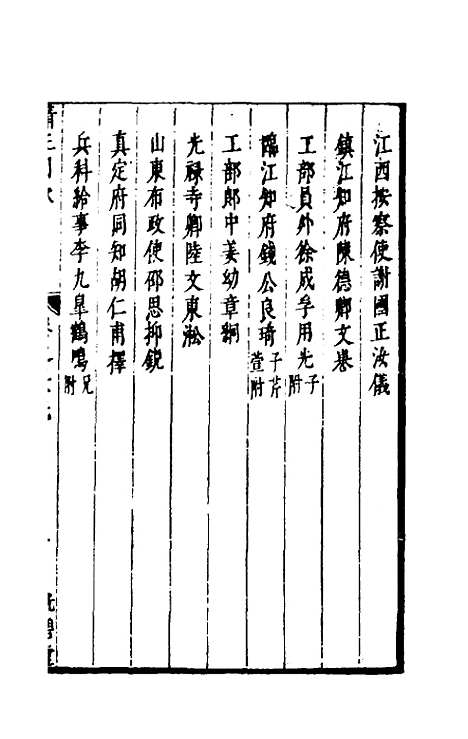 江西按察使謝國正汝儀
鎮江知府陳德卿文譽
工部員外徐成孚用光子附
臨江知府錢公良琦子芹萱附
工部郎中姜幼章絅
光禄寺卿陸文東淞
山東布政使邵思抑銳
真定府同知胡仁甫擇
兵科給事李九皐鶴鳴兄附